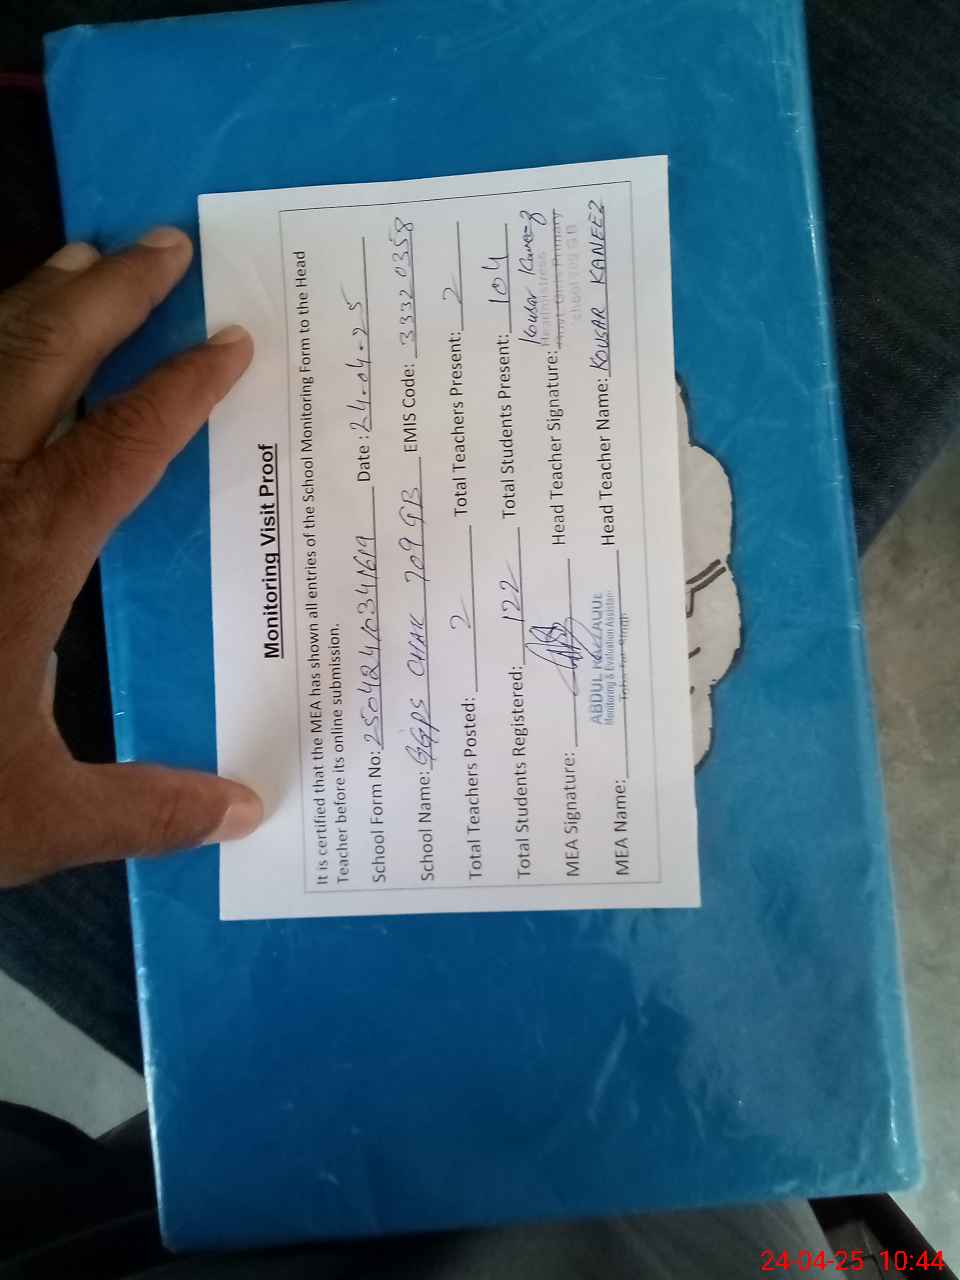 Monitoring Visit Proof
It is certified that the MEA has shown all entries of the School Monitoring Form to the Head
Teacher before its online submission.
School Form No: 25042410341619 Date: 24-04-25
School Name: GGPS CHAK 709 GB EMIS Code: 33320358
Total Teachers Posted: 2 Total Teachers Present: 2
Total Students Registered: 122 Total Students Present: 104
MEA Signature: Head Teacher Signature: Kousar Kaneez
Headmistress
Govt. Girls Primary
School 709 GB
ABDUL RAZZAQUE
Monitoring & Evaluation Assistant
Toba Tek Singh
MEA Name: Head Teacher Name: KOUSAR KANEEZ
24-04-25 10:44